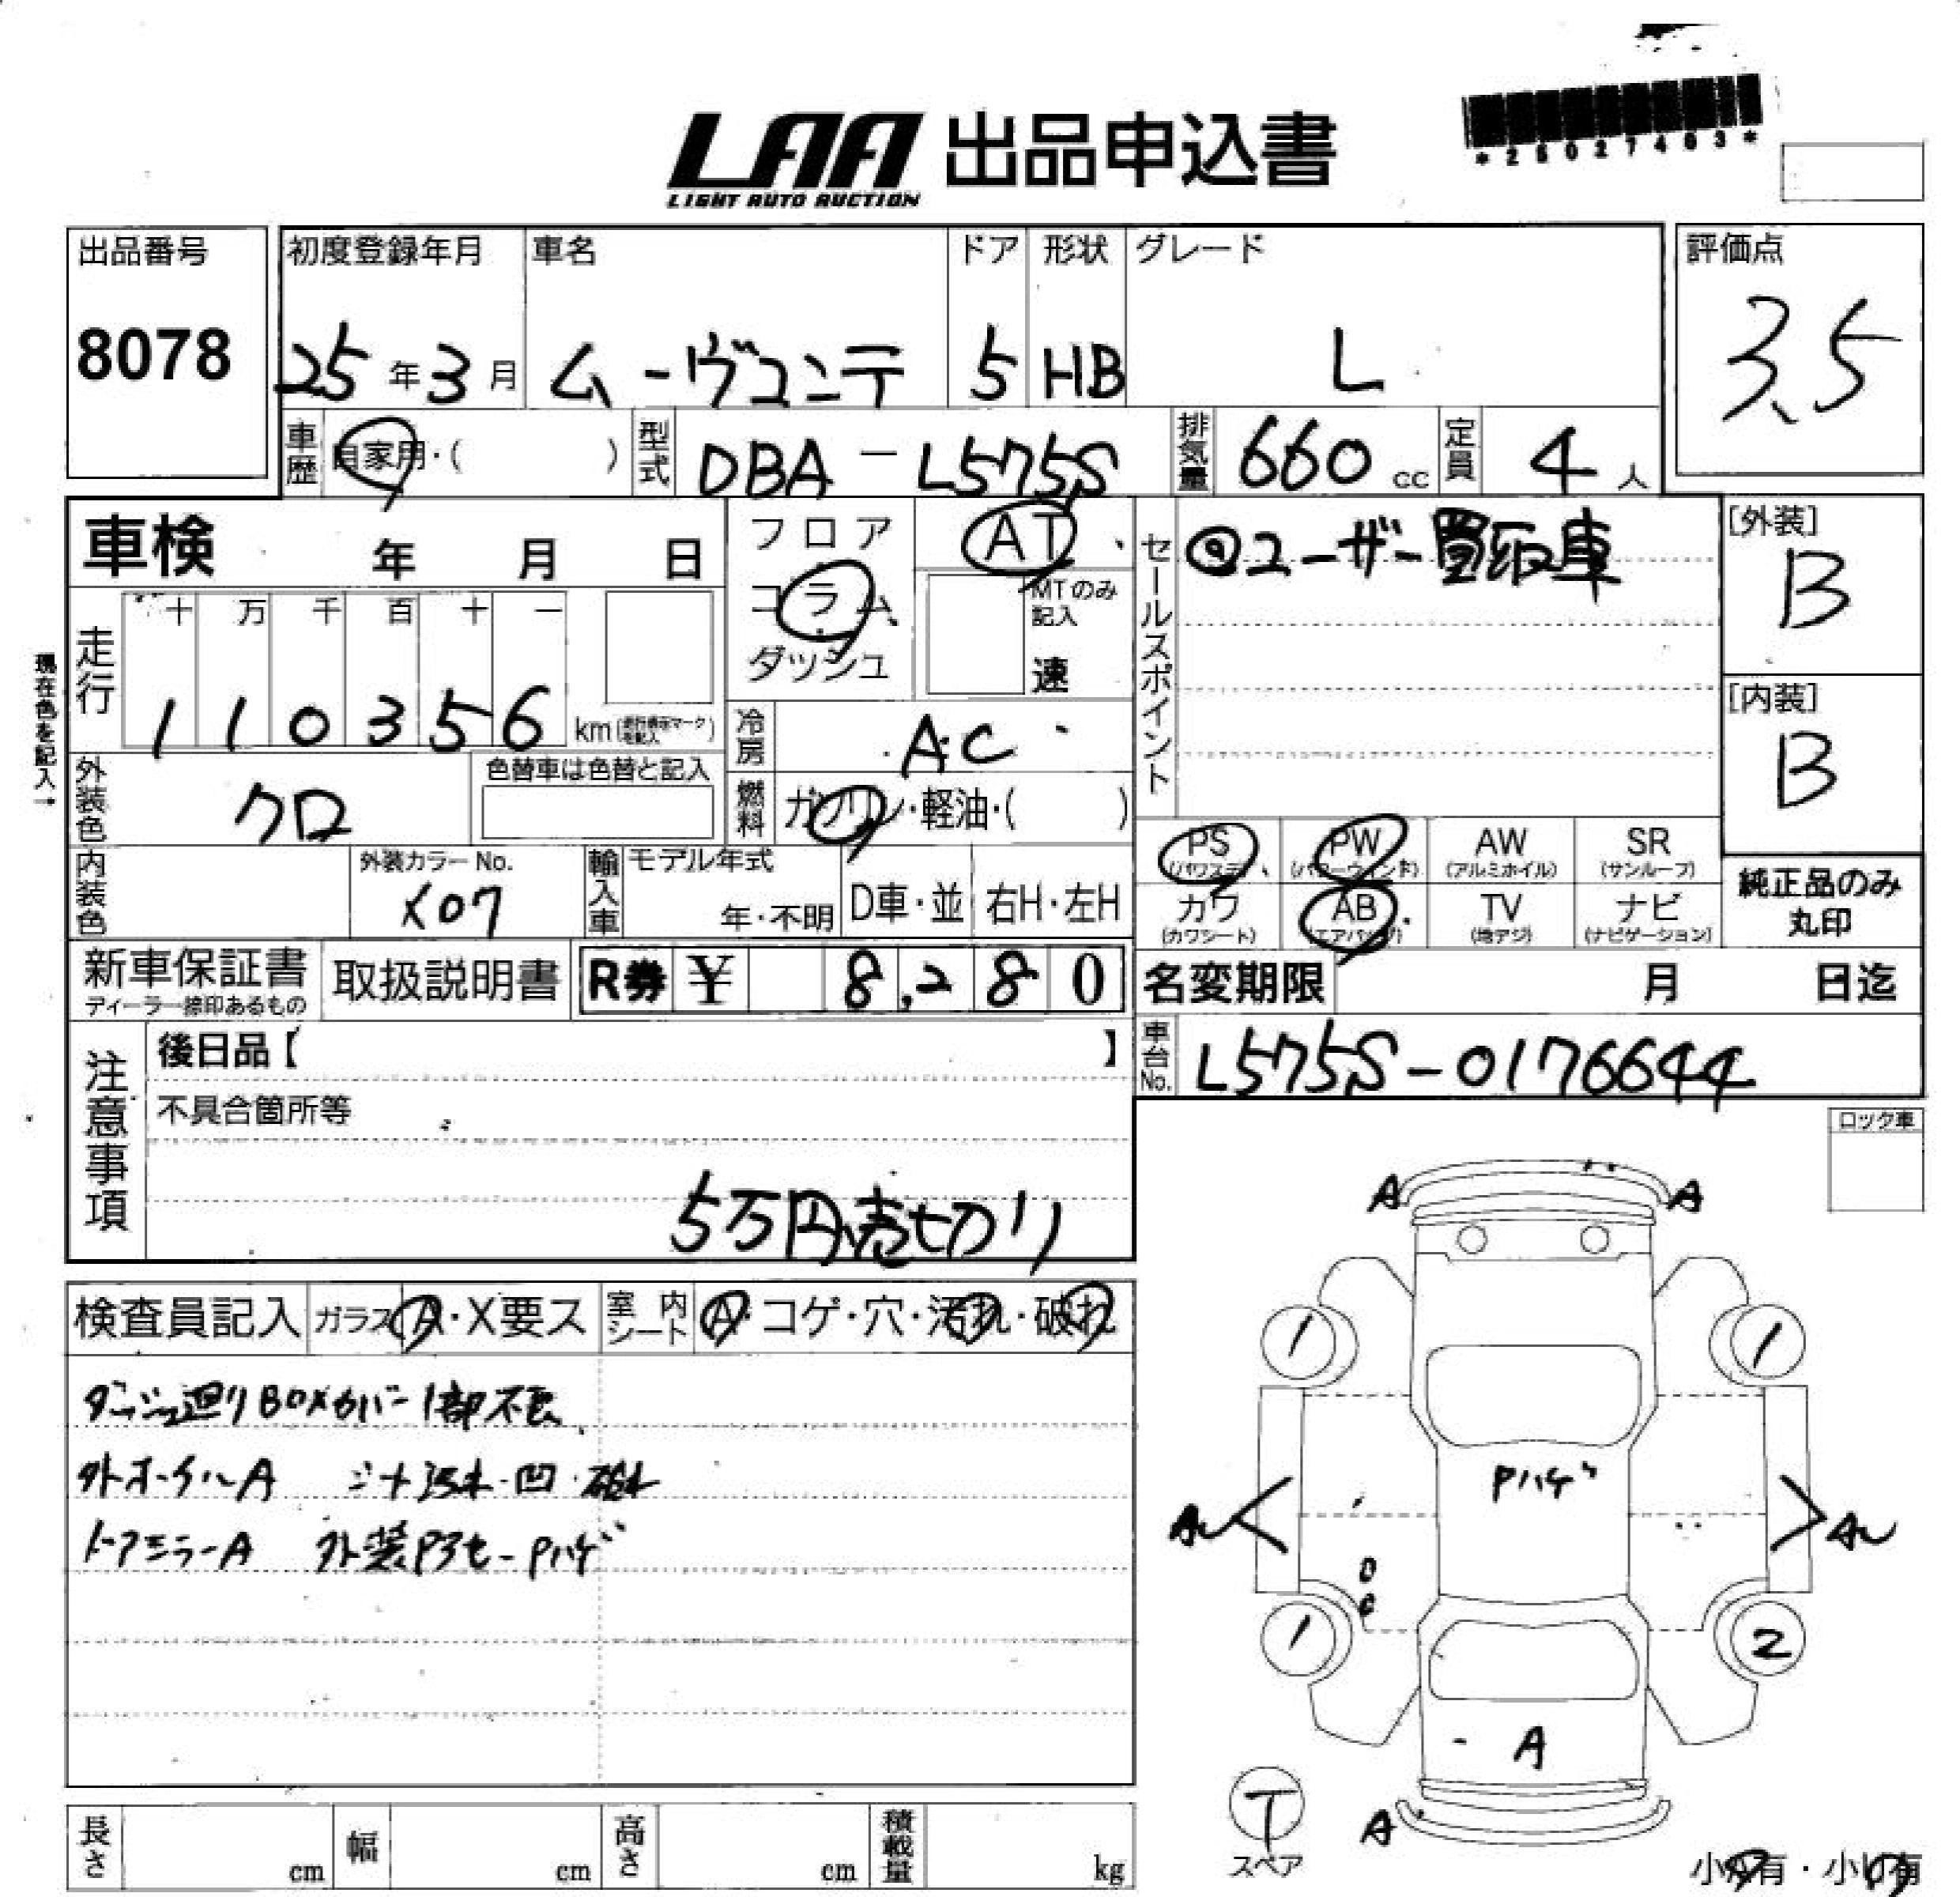 LAA 出品申込書
LIGHT AUTO AUCTION
*25027403*
出品番号
8078
初度登録年月
25年3月
車名
ムーヴコンテ
ドア
5
形状
HB
グレード
L
評価点
3.5
車歴
自家用・( )
型式
DBA-L575S
排気量
660 cc
定員
4人
車検 年 月 日
フロア
コラム
ダッシュ
AT
MTのみ記入
速
セールスポイント
ユーザー買取車
[外装]
B
[内装]
B
現在色を記入→
走行
十 万 千 百 十 一
1 1 0 3 5 6 km
冷房
AC
外装色
クロ
色替車は色替と記入
燃料
ガソリン・軽油・( )
内装色
外装カラーNo.
X07
輸入車
モデル年式
年・不明
D車・並
右H・左H
PS (パワステ)
PW (パワーウィンド)
AW (アルミホイル)
SR (サンルーフ)
カワ (カワシート)
AB (エアバッグ)
TV (地デジ)
ナビ (ナビゲーション)
純正品のみ
丸印
新車保証書
ディーラー捺印あるもの
取扱説明書
R券 ¥ 8,280
名変期限 月 日迄
車台No.
L575S-0176644
注意事項
後日品【 】
不具合箇所等
5万円売切り
ロック車
検査員記入
ガラス A・X要ス
室内シート
A・コゲ・穴・汚れ・破れ
ダッシュ廻りBOXカバー1部不良
外ホイールA 汚れ・凹・破れ
ドアミラーA 外装Pヤセ-Pハゲ
A A
1 1
Pハゲ
A A
1 2
A
A
T
スペア
長さ cm
幅 cm
高さ cm
積載量 kg